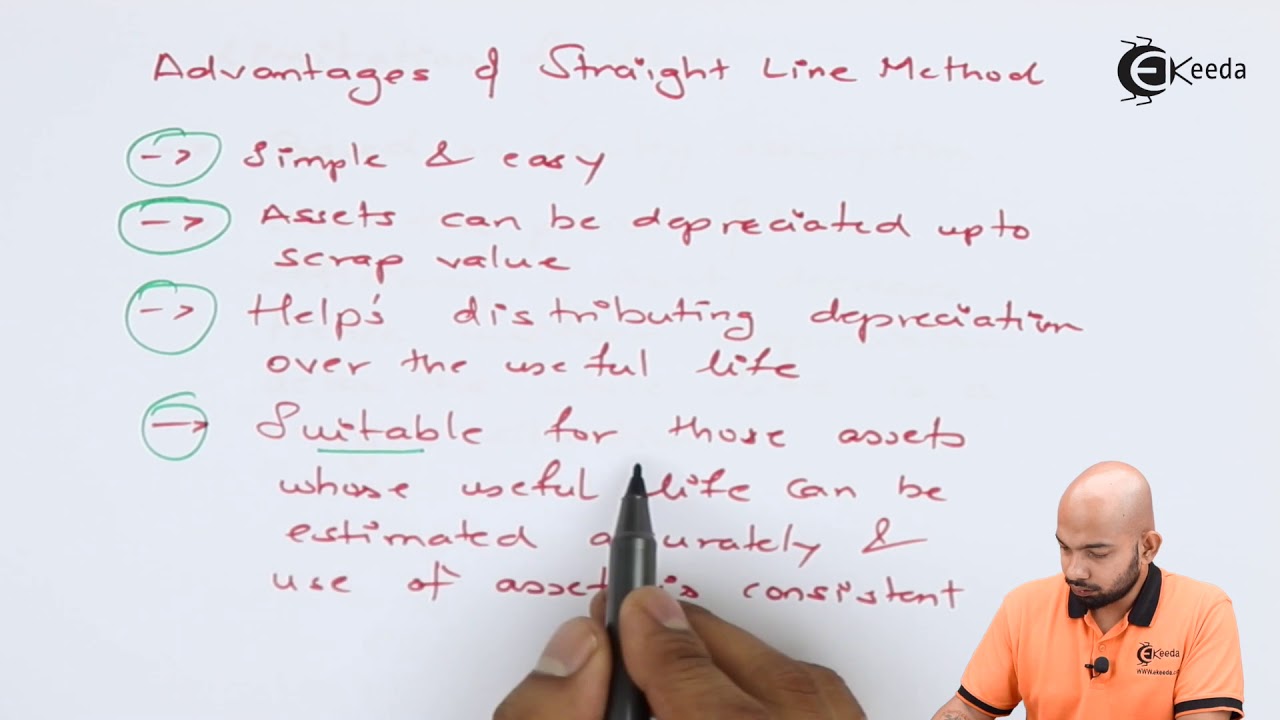 Advantages of Straight Line Method
eKeeda
-> Simple & easy
-> Assets can be depreciated upto
scrap value
-> Help's distributing depreciation
over the useful life
-> Suitable for those assets
whose useful life can be
estimated accurately &
use of asset is consistent
eKeeda